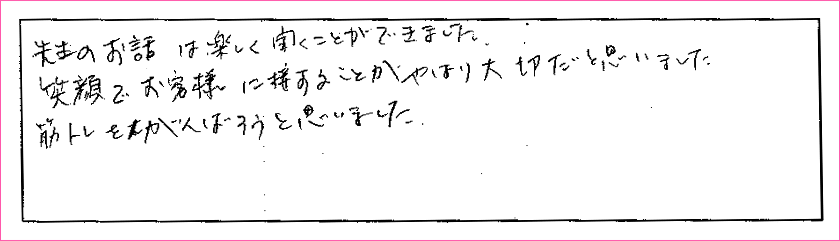 先生のお話は楽しく聞くことができました。
笑顔でお客様に接することがやはり大切だと思いました
筋トレをがんばろうと思いました。